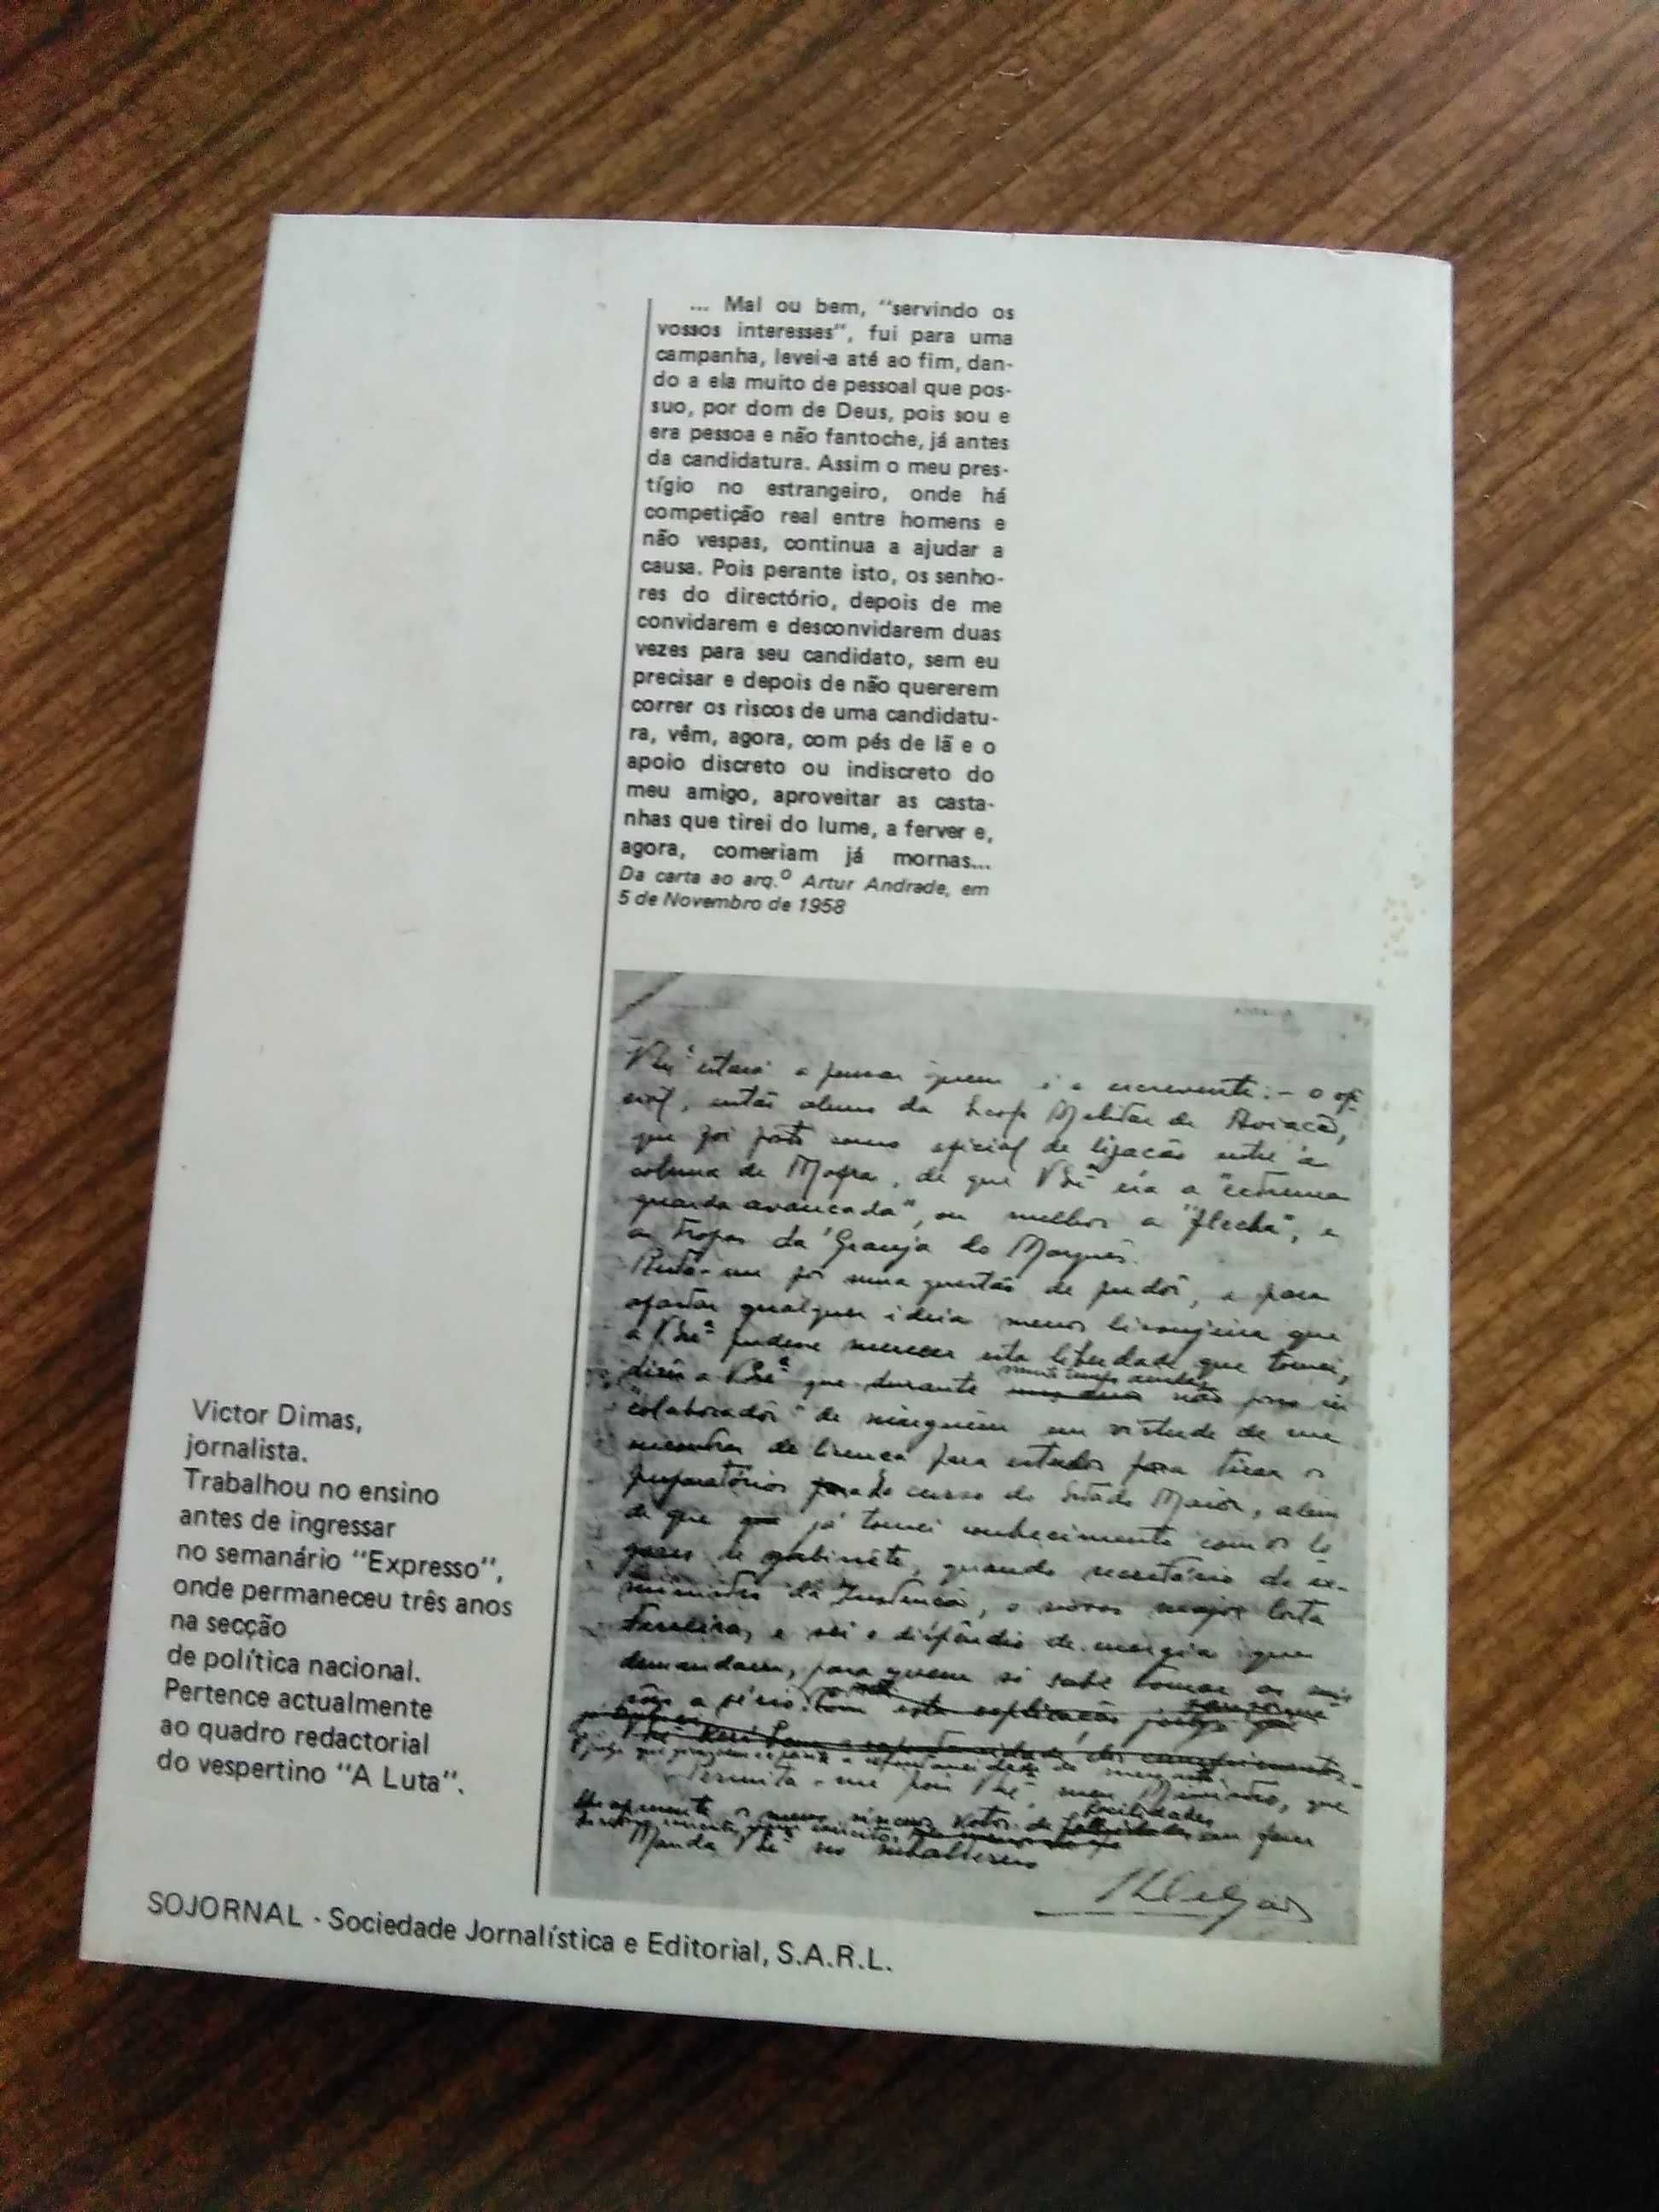 ... Mal ou bem, "servindo os
vossos interesses", fui para uma
campanha, levei-a até ao fim, dan-
do a ela muito de pessoal que pos-
suo, por dom de Deus, pois sou e
era pessoa e não fantoche, já antes
da candidatura. Assim o meu pres-
tígio no estrangeiro, onde há
competição real entre homens e
não vespas, continua a ajudar a
causa. Pois perante isto, os senho-
res do directório, depois de me
convidarem e desconvidarem duas
vezes para seu candidato, sem eu
precisar e depois de não quererem
correr os riscos de uma candidatu-
ra, vêm, agora, com pés de lã e o
apoio discreto ou indiscreto do
meu amigo, aproveitar as casta-
nhas que tirei do lume, a ferver e,
agora, comeriam já mornas...
Da carta ao arq.º Artur Andrade, em
5 de Novembro de 1958
estará a pensar quem é o escrevente: - O ofi-
cial, então aluno da Militar de Aviação,
que foi como oficial de ligação entre a
coluna de Mafra, de que V Exª era a "extrema
guarda avançada", ou melhor a "flecha", e
as tropas da Granja do Marquês.
uma questão de pudôr, e para
afastar qualquer ideia menos lisonjeira que
a V Exª pudesse merecer esta liberdade que tomei,
direi a V Exª que durante não
"colaborador" de ninguém em virtude de me
de licença para estudos para tirar os
preparatórios curso do Estado Maior, além
de que já tomei conhecimento com os lo-
gares de gabinete, quando secretário do ex-
ministro da o nosso major Costa
Ferreira, e sei o dispêndio de energia que
demandam, para quem só sabe tomar as
a sério. Com esta explicação
Permita-me pois meu Ministro, que
os meus sinceros votos de facilidades
Manda subalterno
Delgado
Victor Dimas,
jornalista.
Trabalhou no ensino
antes de ingressar
no semanário "Expresso",
onde permaneceu três anos
na secção
de política nacional.
Pertence actualmente
ao quadro redactorial
do vespertino "A Luta".
SOJORNAL - Sociedade Jornalística e Editorial, S.A.R.L.